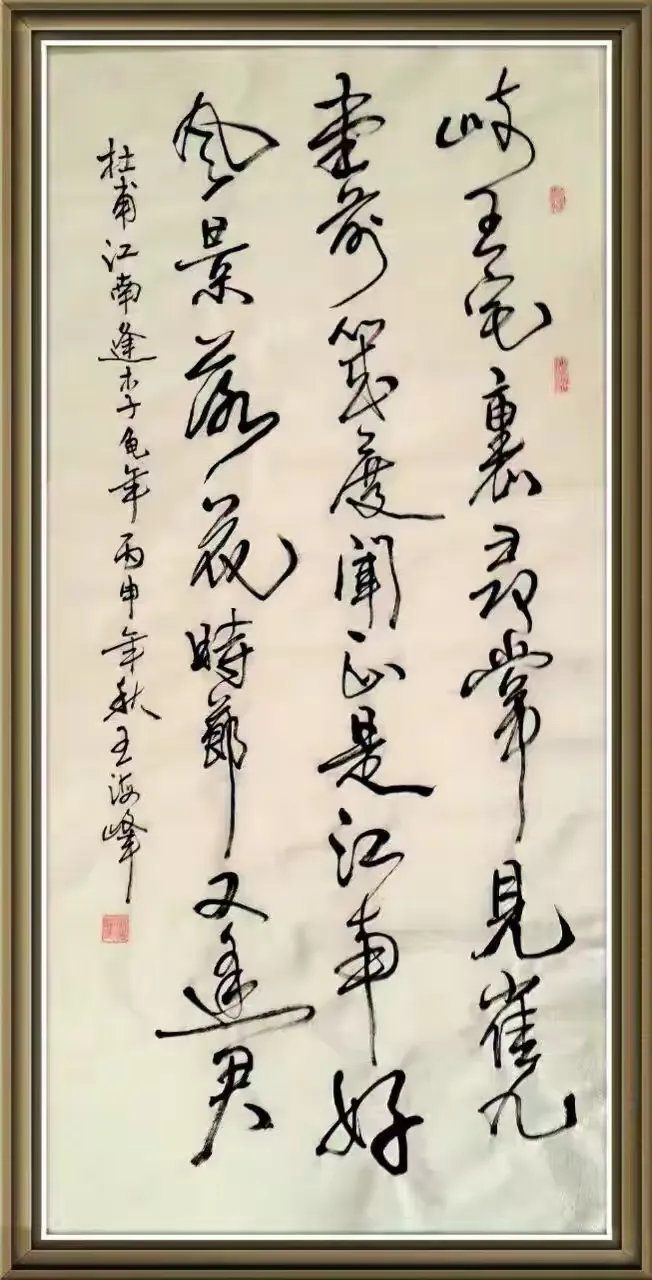 岐王宅裏尋常見崔九
堂前幾度聞正是江南好
風景落花時節又逢君
杜甫江南逢李龜年 丙申年秋王海峰